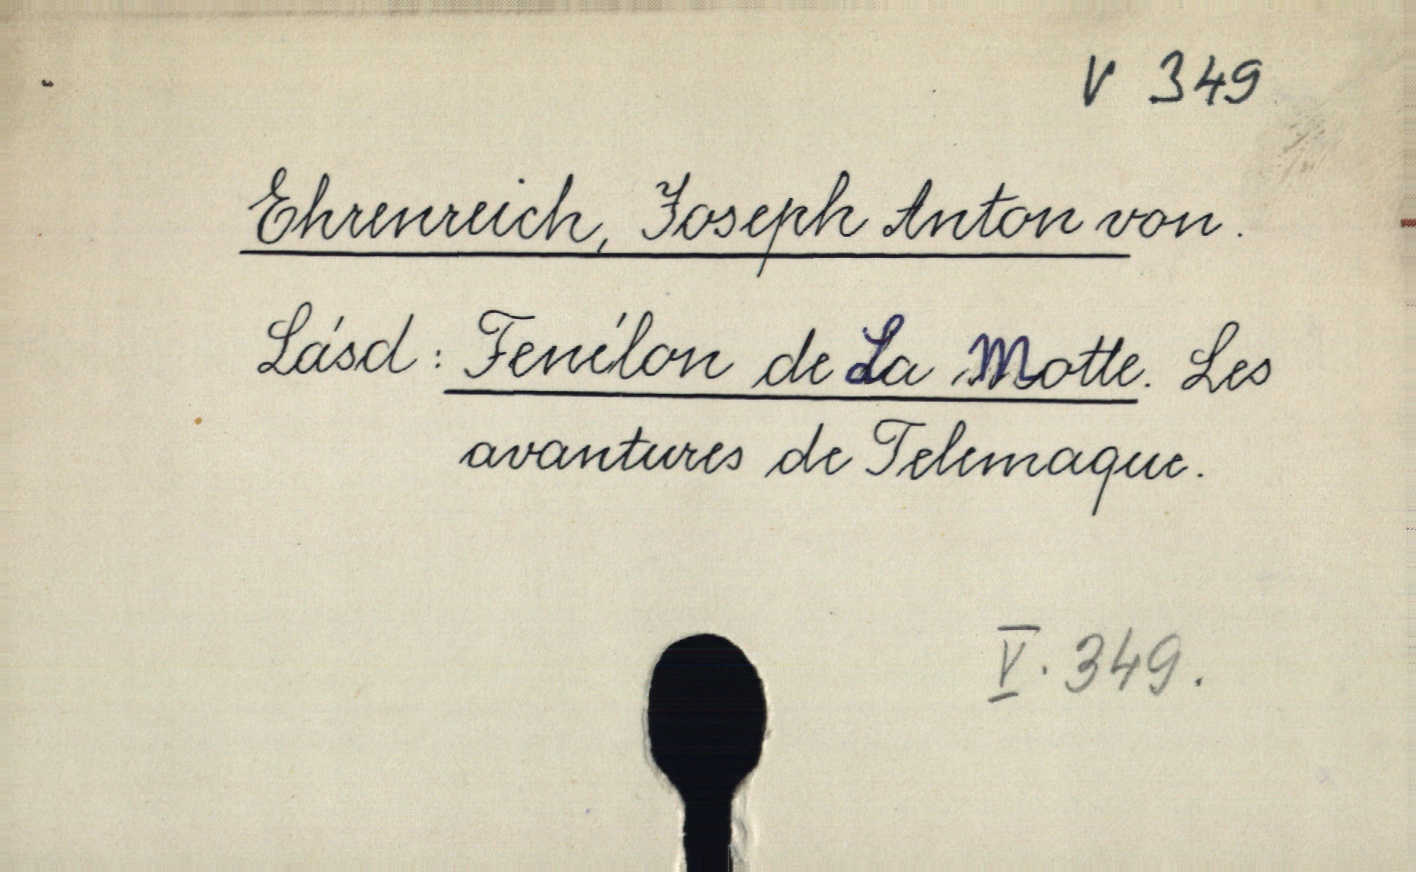 V 349
Ehrenreich, Joseph Anton von.
Lásd: Fenélon de La Motte. Les
avantures de Telemaque.
V. 349.